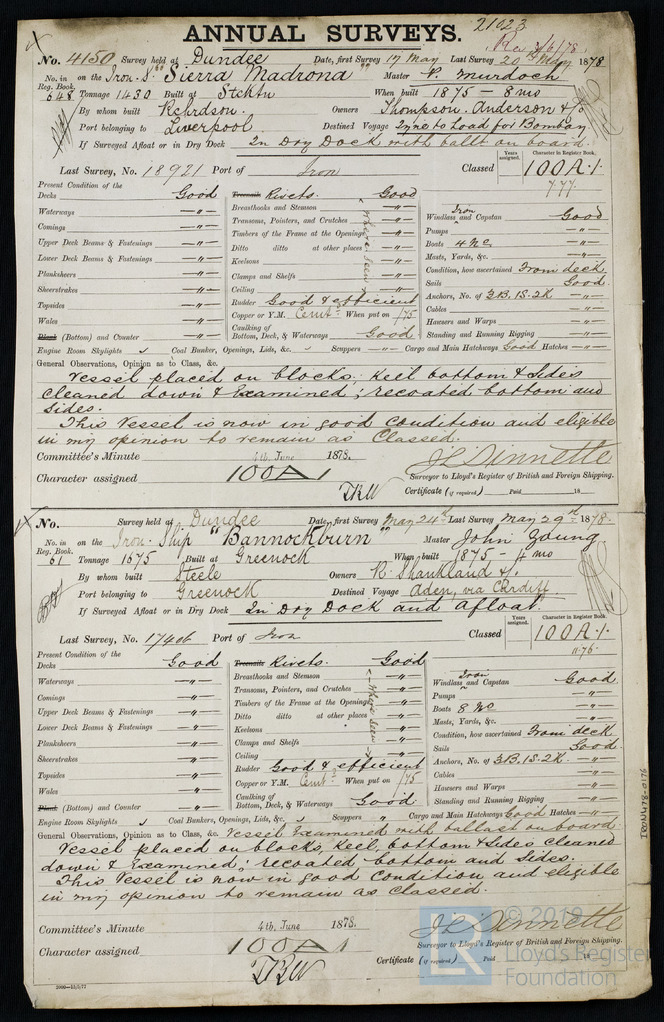 21023
ANNUAL SURVEYS.
Rec 3/6/78
No. 4150 Survey held at Dundee Date, first Survey 17 May Last Survey 20th May 1878
No. in Reg. Book. 648 on the Iron S. "Sierra Madrona" Master P. Murdoch
Tonnage 1430 Built at Stcktn When built 1875 - 8 mo
By whom built Rchrdson Owners Thompson, Anderson & Co
Port belonging to Liverpool Destined Voyage Tyne to Load for Bombay
If Surveyed Afloat or in Dry Dock In Dry Dock with ballt on board.
Last Survey, No. 18921 Port of Iron Classed
Years assigned. Character in Register Book.
100A.1.
7.77.
Present Condition of the
Decks Good
Waterways —"—
Comings —"—
Upper Deck Beams & Fastenings —"—
Lower Deck Beams & Fastenings —"—
Planksheers —"—
Sheerstrakes —"—
Topsides —"—
Wales —"—
Plank (Bottom) and Counter —"—
Treenails Rivets. Good
Breasthooks and Stemson —"—
Transoms, Pointers, and Crutches —"—
Timbers of the Frame at the Openings —"—
Ditto ditto at other places —"—
Keelsons —"—
Clamps and Shelfs —"—
Ceiling —"—
where seen
Rudder Good & efficient
Copper or Y.M. Cemt. When put on /75
Caulking of Bottom, Deck, & Waterways Good
Iron
Windlass and Capstan Good
Pumps —"—
Boats 4 No. —"—
Masts, Yards, &c. —"—
Condition, how ascertained From deck
Sails Good.
Anchors, No. of 3B.1S.2K —"—
Cables —"—
Hawsers and Warps —"—
Standing and Running Rigging —"—
Engine Room Skylights " Coal Bunker, Openings, Lids, &c. " Scuppers —"— Cargo and Main Hatchways Good Hatches —"—
General Observations, Opinion as to Class, &c.
Vessel placed on blocks. Keel bottom & Sides
cleaned down & Examined; recoated bottom and
Sides.
This Vessel is now in good condition and eligible
in my opinion to remain as Classed.
Committee's Minute 4th. June 1878.
Character assigned 100A1
J L Sinnette
Surveyor to Lloyd's Register of British and Foreign Shipping.
Certificate (if required) Paid 18
No. Survey held at Dundee Date, first Survey May 24th Last Survey May 29th 1878.
No. in Reg. Book 61 on the Iron Ship "Bannockburn" Master John Young.
Tonnage 1675 Built at Greenock When built 1875 - 4 mo
By whom built Steele Owners R. Shankland & Co.
Port belonging to Greenock Destined Voyage Aden, via Cardiff
If Surveyed Afloat or in Dry Dock In Dry Dock and Afloat.
Last Survey, No. 17406 Port of Iron Classed
Years assigned. Character in Register Book.
100A.1.
11.76.
Present Condition of the
Decks Good
Waterways —"—
Comings —"—
Upper Deck Beams & Fastenings —"—
Lower Deck Beams & Fastenings —"—
Planksheers —"—
Sheerstrakes —"—
Topsides —"—
Wales —"—
Plank (Bottom) and Counter —"—
Treenails Rivets. Good
Breasthooks and Stemson —"—
Transoms, Pointers, and Crutches —"—
Timbers of the Frame at the Openings —"—
Ditto ditto at other places —"—
Keelsons —"—
Clamps and Shelfs —"—
Ceiling —"—
where seen
Rudder Good & efficient
Copper or Y.M. Cemt. When put on /75
Caulking of Bottom, Deck, & Waterways Good
Iron
Windlass and Capstan Good.
Pumps —"—
Boats 8 No —"—
Masts, Yards, &c. —"—
Condition, how ascertained From deck
Sails Good.
Anchors, No. of 3B.1S.2K. —"—
Cables —"—
Hawsers and Warps —"—
Standing and Running Rigging —"—
Engine Room Skylights " Coal Bunkers, Openings, Lids, &c. " Scuppers " Cargo and Main Hatchways Good Hatches —"—
General Observations, Opinion as to Class, &c. Vessel Examined with ballast on board
Vessel placed on blocks, Keel, bottom & Sides cleaned
down & Examined; recoated bottom and Sides.
This Vessel is now in good condition and eligible
in my opinion to remain as Classed.
Committee's Minute 4th. June 1878.
Character assigned 100A1
J L Sinnette
Surveyor to Lloyd's Register of British and Foreign Shipping.
Certificate (if required) Paid 18
IRON478-0176
LR © 2019
Lloyd's Register
Foundation